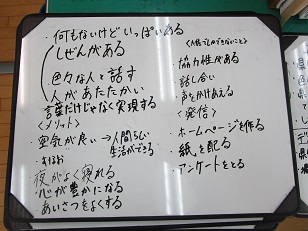 ・何もないけどいっぱいある
しぜんがある
色々な人と話す
人があたたかい
言葉だけじゃなく実現する
〈メリット〉
空気が良い → 人間らしい
生活ができる
夜がよく寝れる
心が豊かになる
あいさつをよくする
・協力性がある
・話し合い
・声をかけあえる
〈発信〉
・ホームページを作る
・紙を配る
・アンケートをとる